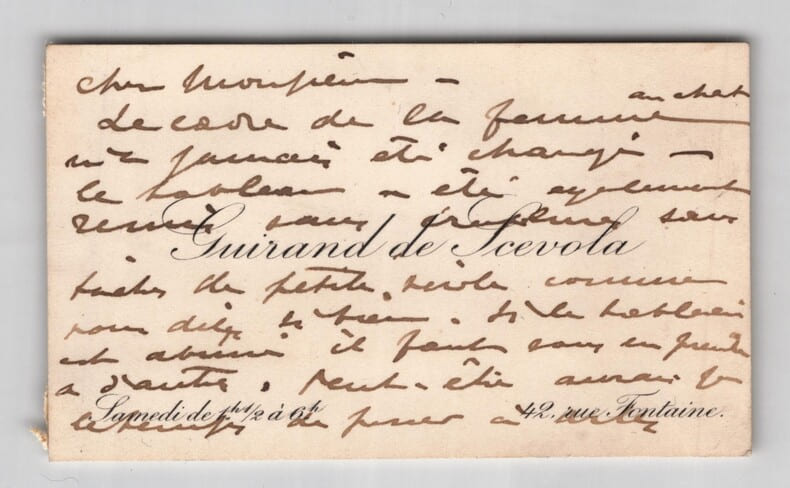 cher Monsieur —
Le cadre de la femme au chat
n'a jamais été changé —
le tableau a été egalement
remis sans sans
Guirand de Scevola
taches de petite comme
vous dites si bien. Si le tableau
est abimé il faut vous en prendre
a d'autres. Peut-être aurai je
Samedi de 1h 1/2 à 6h 42, rue Fontaine.
le temps de passer a